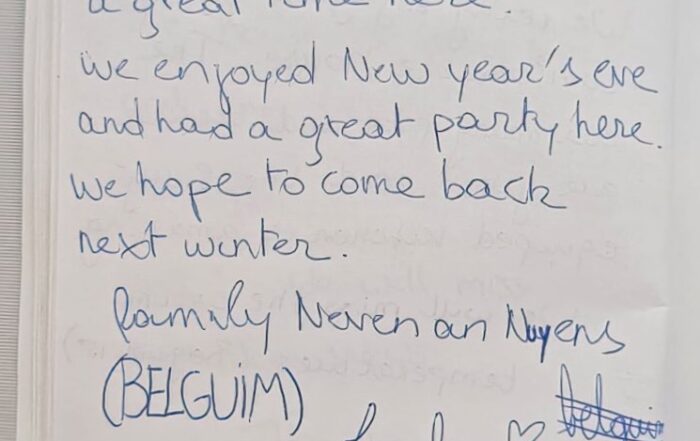 a great time here.
we enjoyed New year's eve
and had a great party here.
we hope to come back
next winter.
family Neven an Nuyens
(BELGUiM)
♡ belguim